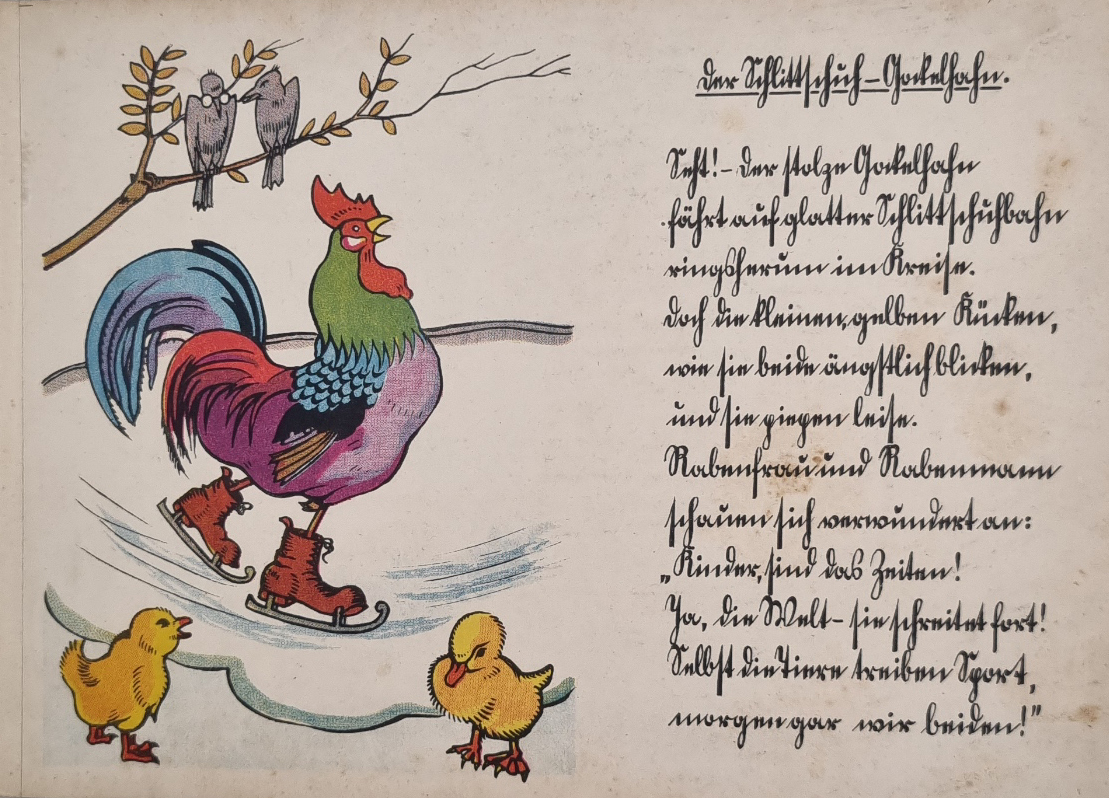 Der Schlittschuh-Gockelhahn.
Seht! - Der stolze Gockelhahn
fährt auf glatter Schlittschuhbahn
ringsherum im Kreise.
Doch die kleinen, gelben Kücken,
wie sie beide ängstlich blicken,
und sie piepen leise.
Rabenfrau und Rabenmann
schauen sich verwundert an:
„Kinder, sind das Zeiten!
Ja, die Welt - sie schreitet fort!
Selbst die Tiere treiben Sport,
morgen gar wir beiden!"